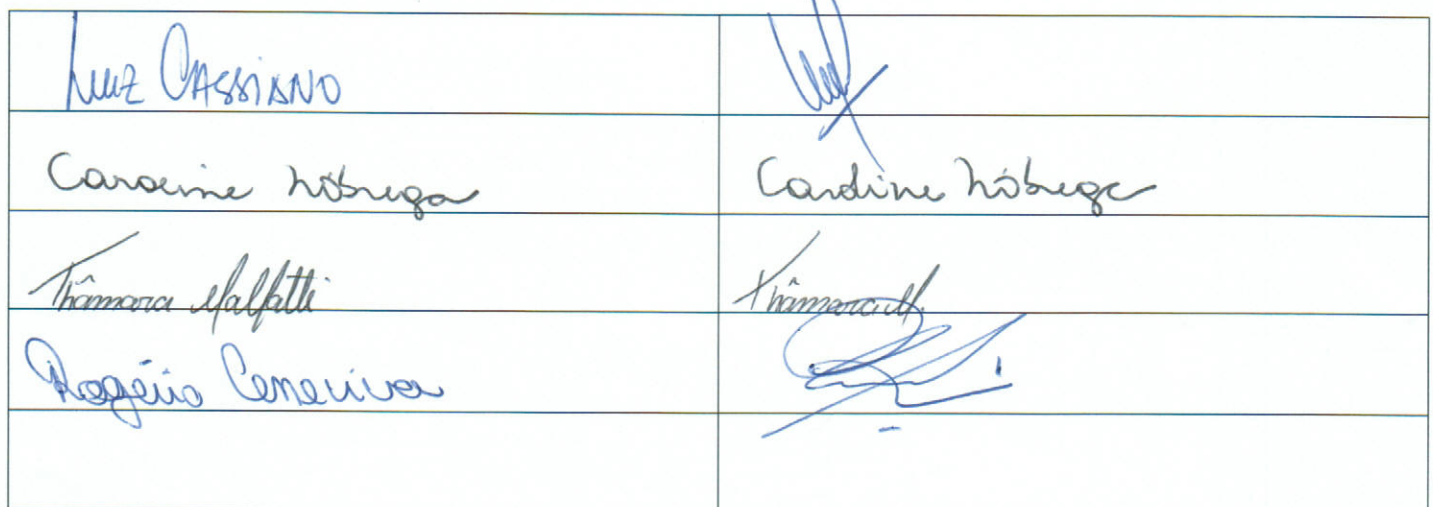 Luiz CASSIANO
Caroline Nóbrega Caroline Nóbrega
Thâmara Malfatti Thâmara M.
Rogério Ceneviva